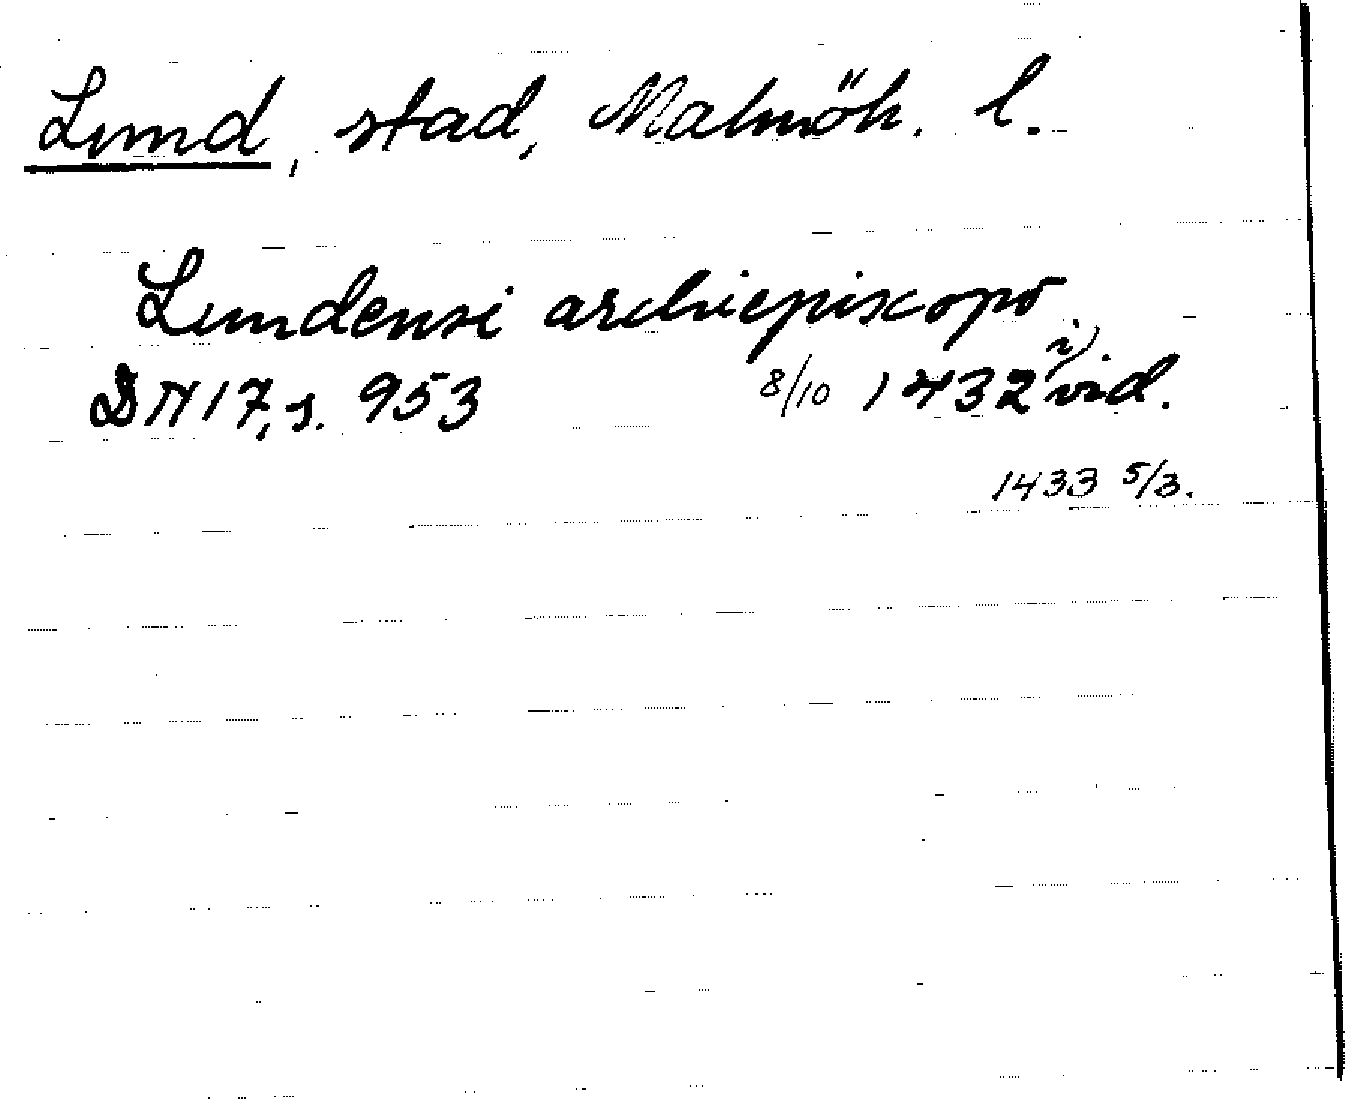 Lund, stad, Malmöh. l.
Lundensi archiepiscopo
DN 17, s. 953 8/10 1432 i) vid.
1433 5/3.